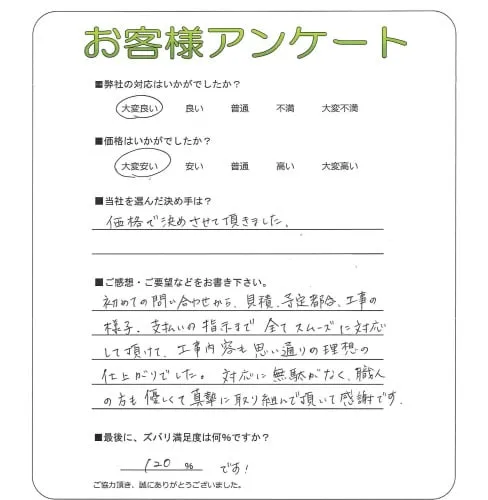 お客様アンケート
■弊社の対応はいかがでしたか？
大変良い 良い 普通 不満 大変不満
■価格はいかがでしたか？
大変安い 安い 普通 高い 大変高い
■当社を選んだ決め手は？
価格で決めさせて頂きました。
■ご感想・ご要望などをお書き下さい。
初めての問い合わせから、見積、予定都合、工事の
様子、支払いの指示まで全てスムーズに対応
して頂けて、工事内容も思い通りの理想の
仕上がりでした。対応に無駄がなく、職人
の方も優しくて真摯に取り組んで頂いて感謝です。
■最後に、ズバリ満足度は何%ですか？
120 % です！
ご協力頂き、誠にありがとうございました。